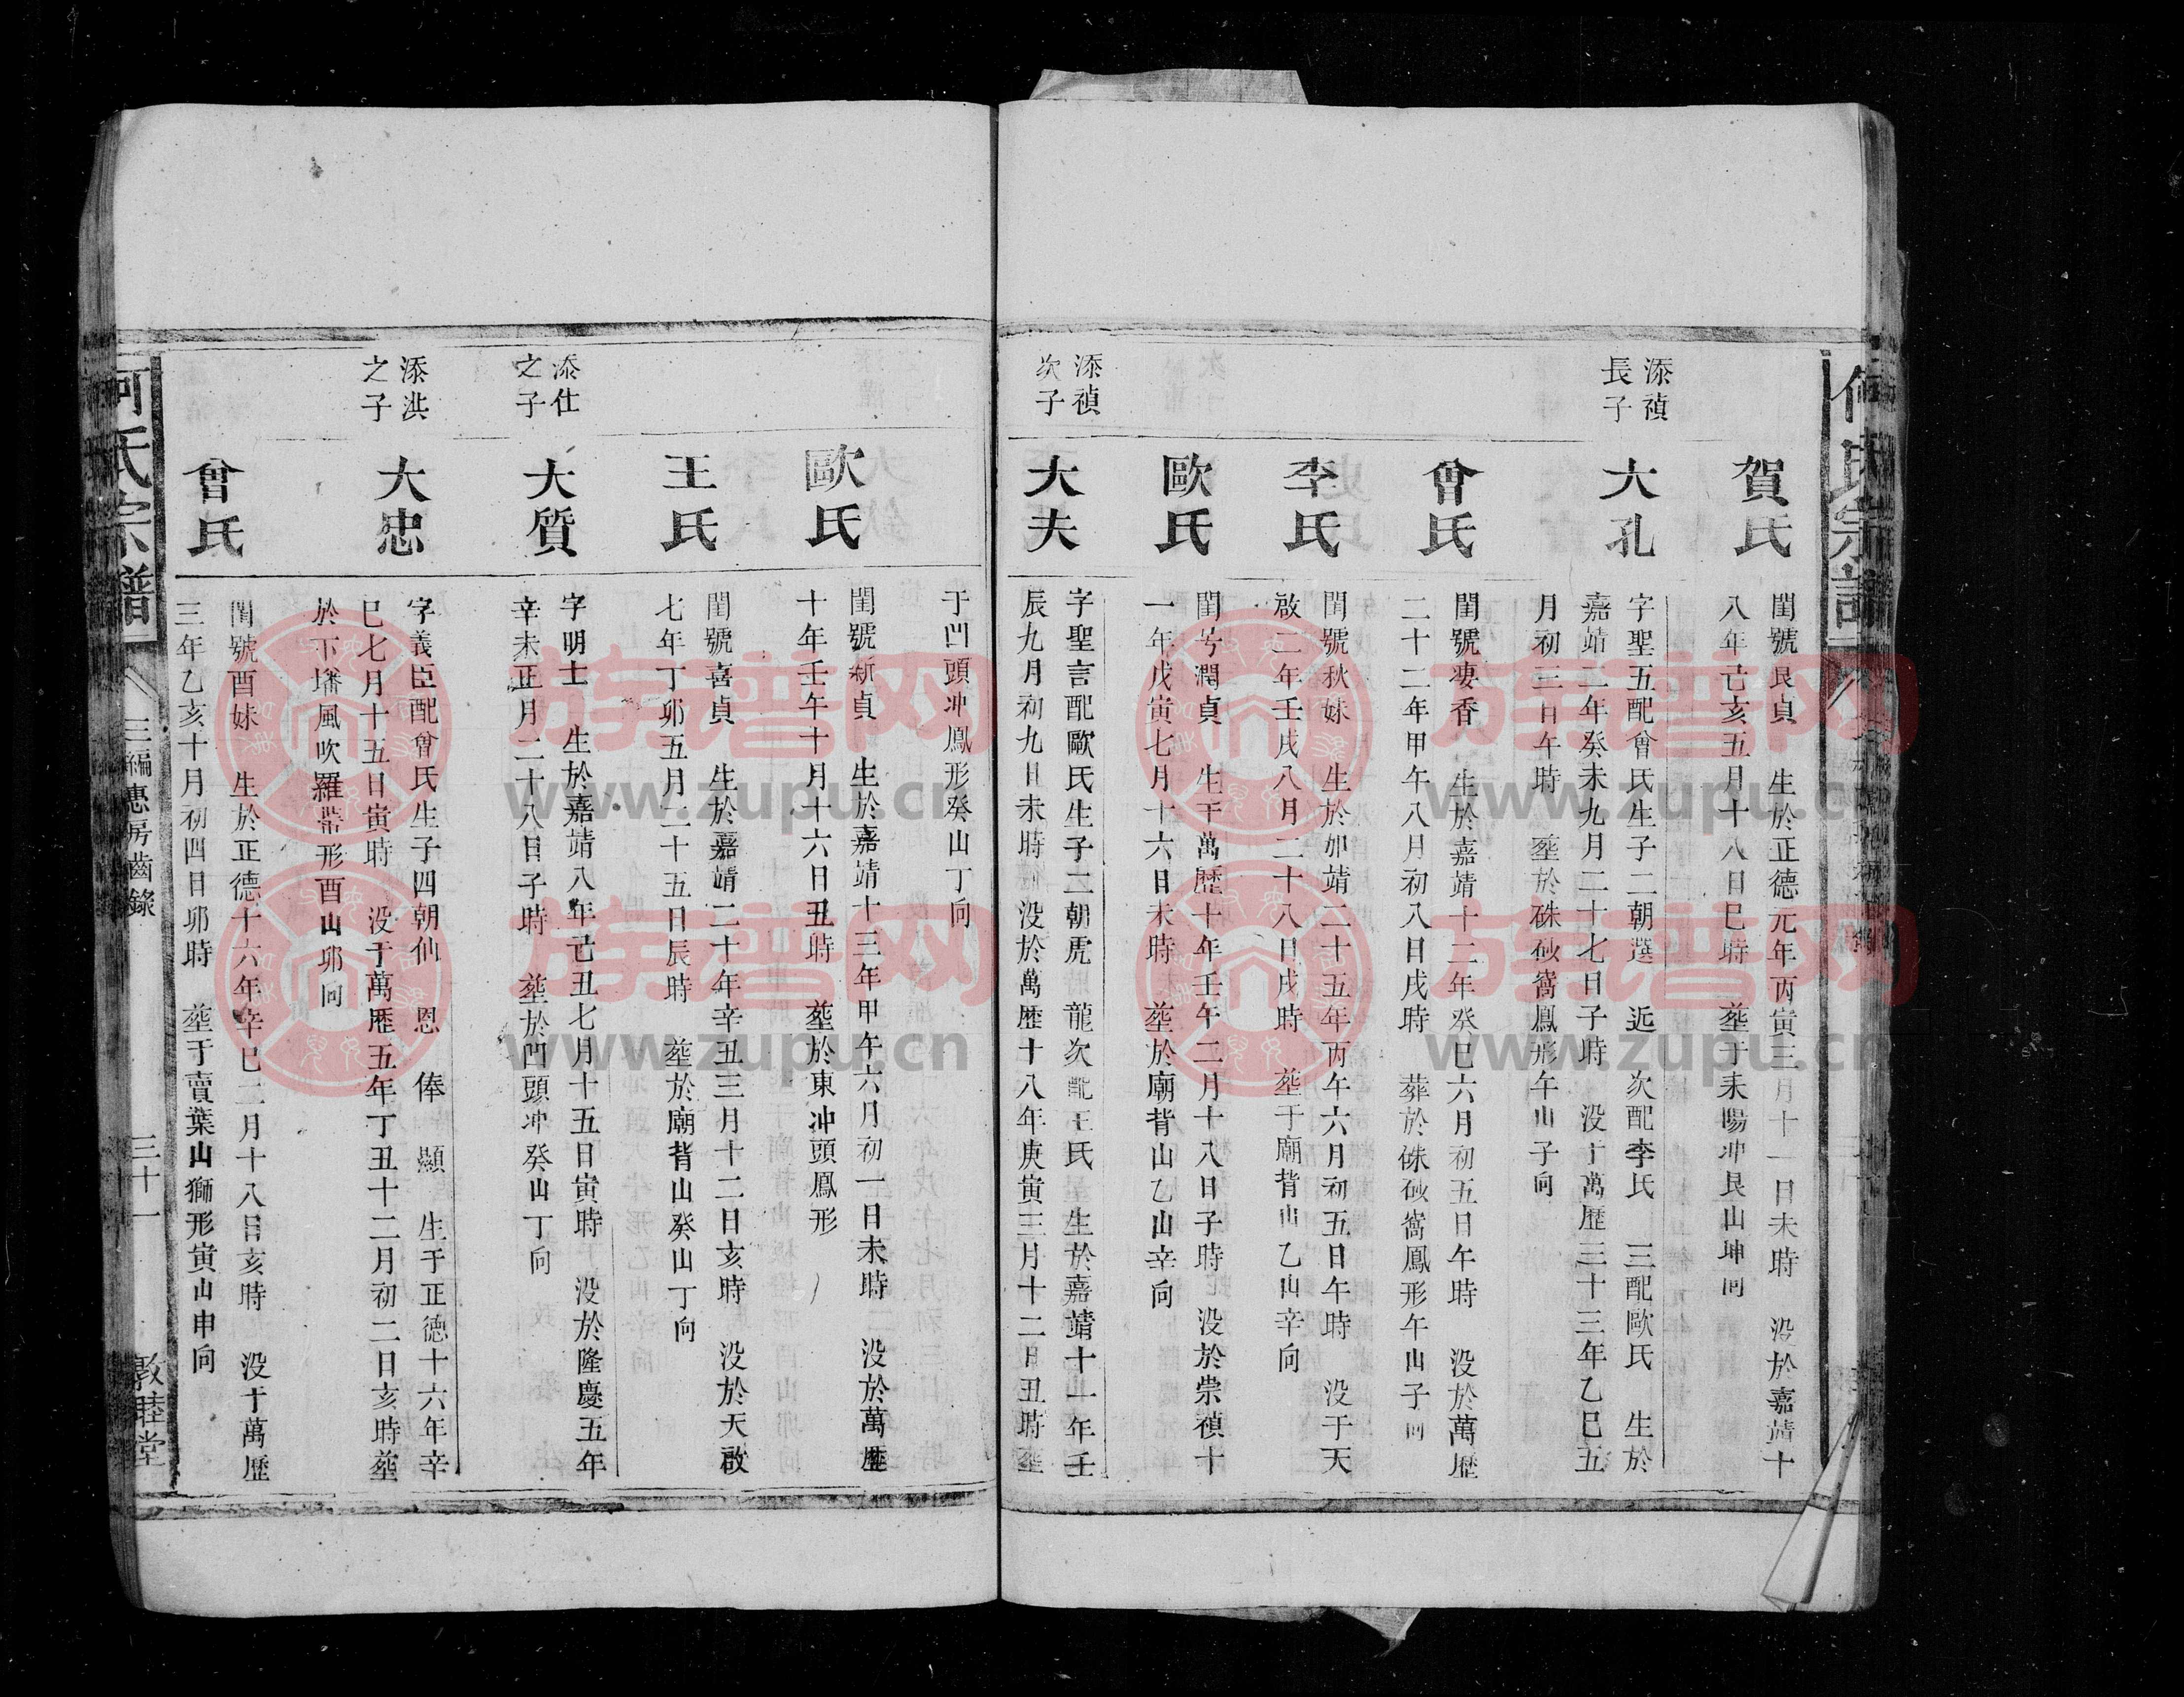 何氏宗譜
賀氏
閨號良貞 生於正德元年丙寅三月十一日未時 没於嘉靖十
八年己亥五月十八日巳時 塟于耒陽冲艮山坤向
添禎
長子
大孔
字聖五配曾氏生子二朝選 近 次配李氏 三配歐氏 生於
嘉靖二年癸未九月二十七日子時 没于萬歷三十三年乙巳五
月初三日午時 塟於硃砂窩鳳形午山子向
曾氏
閨號凄香 生於嘉靖十二年癸巳六月初五日午時 没於萬歷
二十二年甲午八月初八日戌時 葬於硃砂窩鳳形午山子向
李氏
閨號秋妹 生於加靖二十五年丙午六月初五日午時 没于天
啟二年壬戌八月二十八日戌時 塟于廟背山乙山辛向
歐氏
閨号潤貞 生于萬歷十年壬午二月十八日子時 没於崇禎十
一年戊寅七月十六日未時 塟於廟背山乙山辛向
添禎
次子
大夫
字聖言配歐氏生子二朝虎 龍次配王氏 生於嘉靖十一年壬
辰九月初九日未時 没於萬歷十八年庚寅三月十二日丑時塟
于凹頭冲鳳形癸山丁向
歐氏
閨號新貞 生於嘉靖十三年甲午六月初一日未時 没於萬歷
十年壬午十月十六日丑時 塟於東冲頭鳳形
王氏
閨號喜貞 生於嘉靖二十年辛丑三月十二日亥時 没於天啟
七年丁卯五月二十五日辰時 塟於廟背山癸山丁向
添仕
之子
大質
字明士 生於嘉靖八年己丑七月十五日寅時 没於隆慶五年
辛未正月二十八日子時 塟於凹頭冲癸山丁向
添洪
之子
大忠
字義臣配曾氏生子四朝仙 恩 俸 顯 生于正德十六年辛
巳七月十五日寅時 没于萬歷五年丁丑十二月初二日亥時塟
於下墦風吹羅帶形酉山卯向
曾氏
閨號酉妹 生於正德十六年辛巳二月十八日亥時 没于萬歷
三年乙亥十月初四日卯時 塟于賣葉山獅形寅山申向
何氏宗譜
三編惠房齒錄
三十一
敦睦堂
族谱网
www.zupu.cn
族谱网
www.zupu.cn
族谱网
www.zupu.cn
族谱网
www.zupu.cn